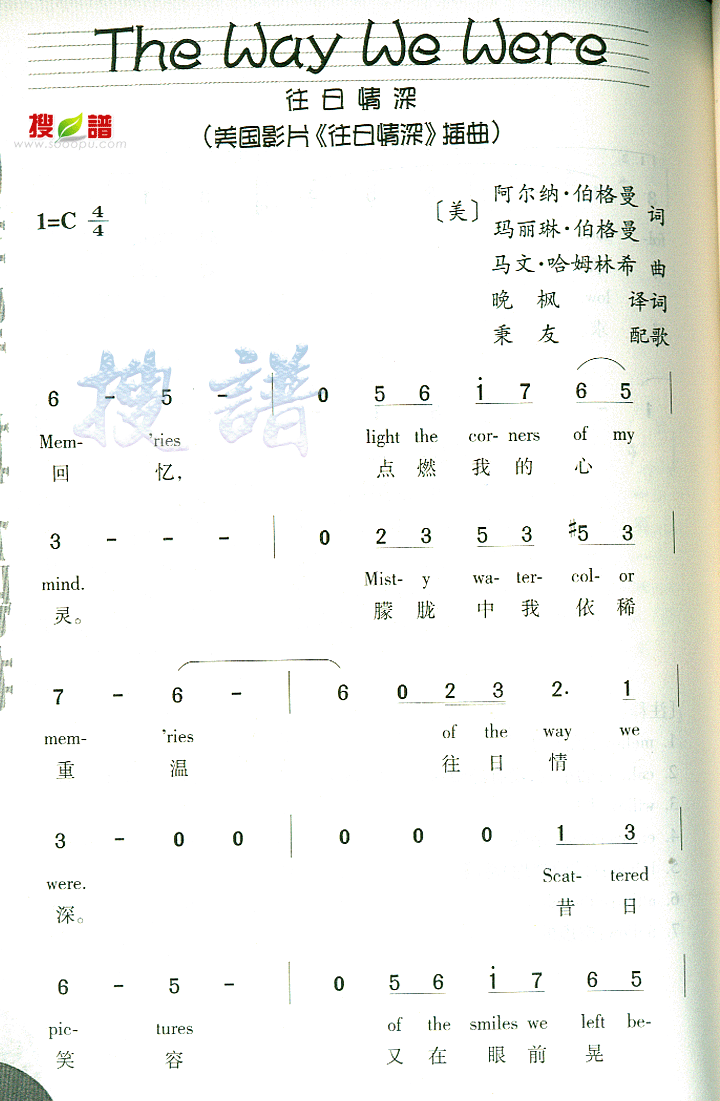 The Way We Were
往日情深
(美国影片《往日情深》插曲)
搜谱
www.sooopu.com
1=C 4/4
〔美〕阿尔纳·伯格曼
玛丽琳·伯格曼 词
马文·哈姆林希 曲
晚枫 译词
秉友 配歌
搜谱
6 - 5 - | 0 5 6 i 7 6 5 |
Mem- 'ries light the cor- ners of my
回 忆, 点 燃 我 的 心
3 - - - | 0 2 3 5 3 #5 3 |
mind. Mist- y wa- ter- col- or
灵。 朦 胧 中 我 依 稀
7 - 6 - | 6 0 2 3 2. 1 |
mem- 'ries of the way we
重 温 往 日 情
3 - 0 0 | 0 0 0 1 3 |
were. Scat- tered
深。 昔 日
6 - 5 - | 0 5 6 i 7 6 5 |
pic- tures of the smiles we left be-
笑 容 又 在 眼 前 晃